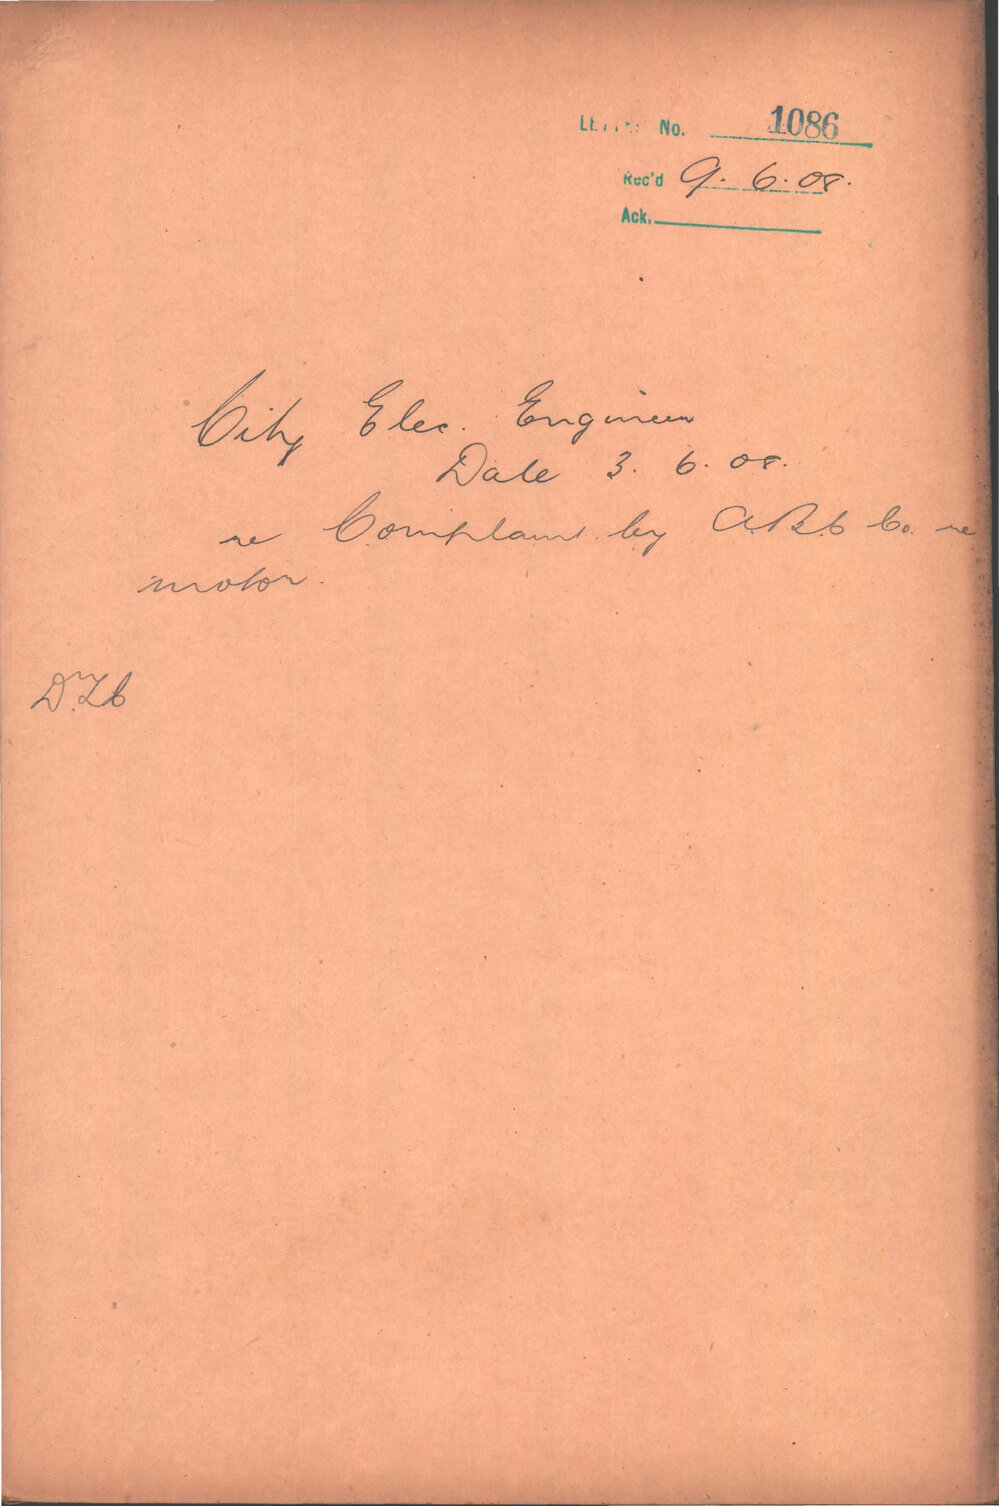 LETTER No. 1086
Rec'd 9.6.08.
Ack.
City Elec. Engineer
Date 3.6.08.
re Complaint by A.B.C Co. re
motor.